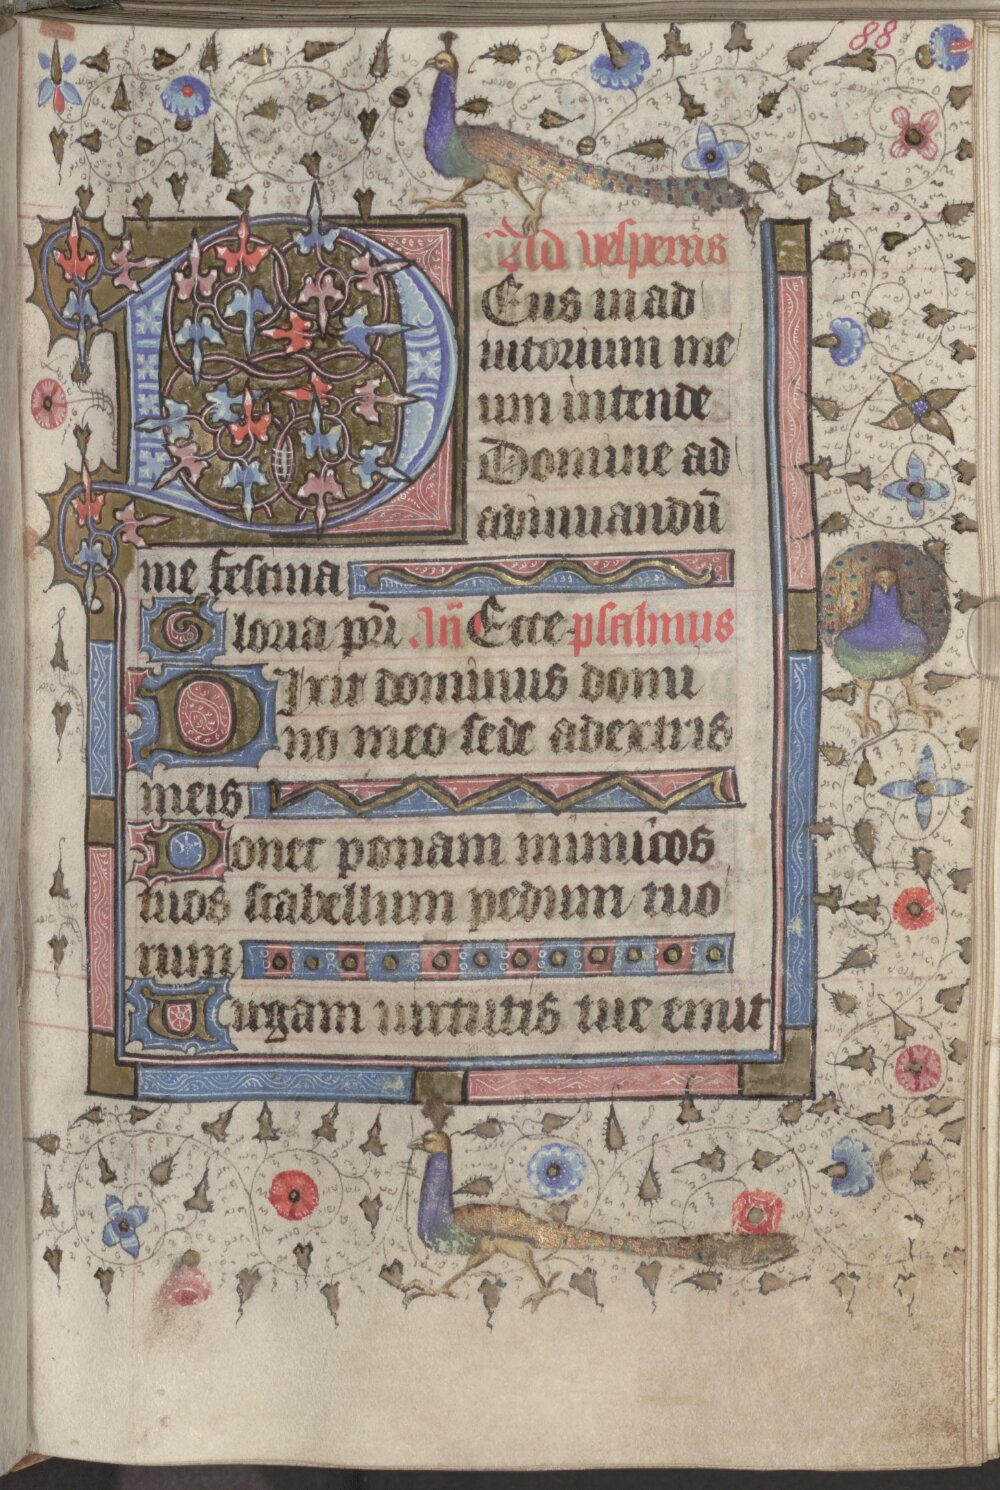 88
Ad vesperas
Deus in ad
iutorium me
um intende
Domine ad
adiuuandū
me festina
Gloria pr̄i Añ Ecce psalmus
Dixit dominus domi
no meo sede adextris
meis
Donec ponam inimicos
tuos scabellum pedum tuo
rum
Uirgam uirtutis tue emit